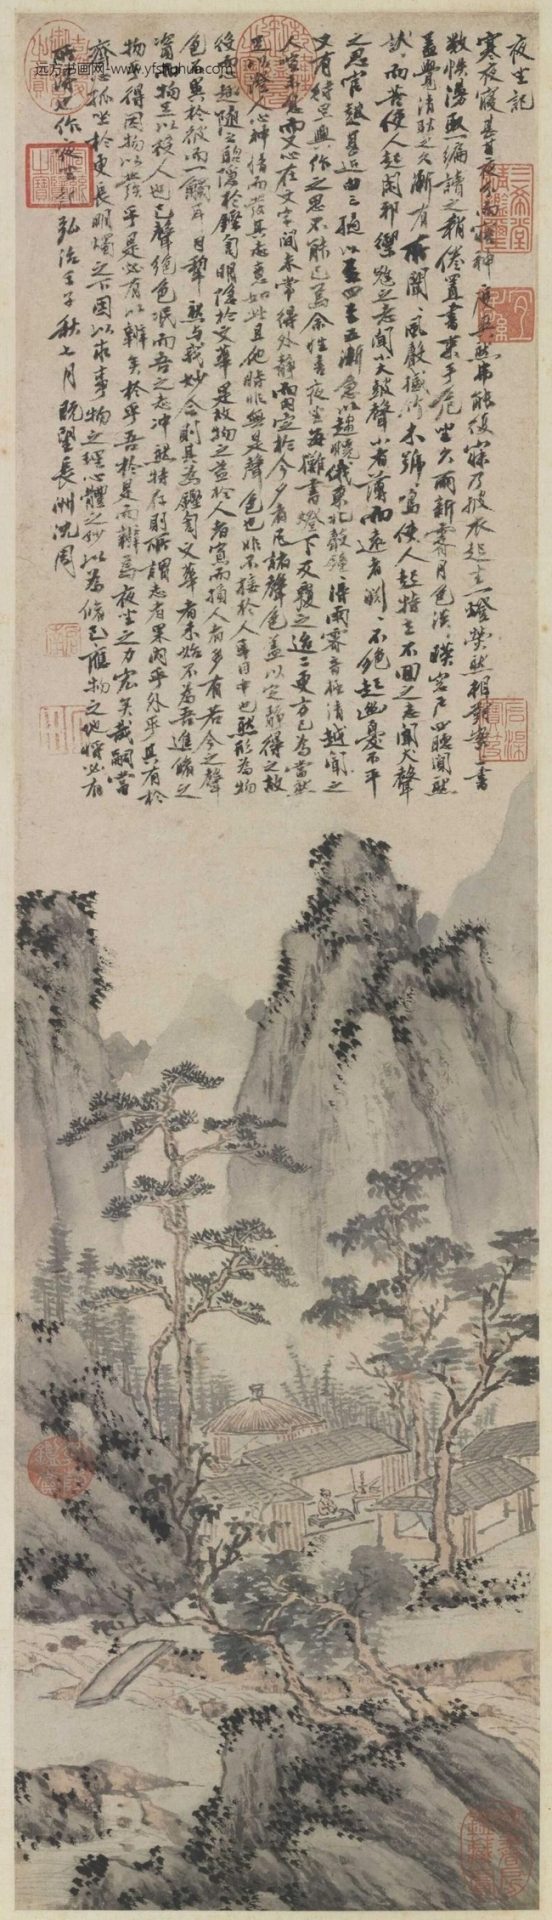 夜坐記
寒夜寢甚甘夜分而寤神度爽然弗能復寐乃披衣起坐一燈熒然相對案上書
數帙漫取一編讀之稍倦置書束手危坐久雨新霽月色淡淡映窗戶四聽闃然
蓋覺清耿之久漸有所聞聞風聲撼竹木號號鳴使人起特立不回之志聞犬聲
狺狺而苦使人起閑邪禦寇之志聞小大鼓聲小者薄而遠者淵淵不絕起幽憂不平
之思官鼓甚近由三撾以至四至五漸急以趨曉俄東北聲鐘鐘得雨霽音極清越聞之
又有待旦興作之思不能已焉余性喜夜坐每攤書燈下反覆之迨二更方已為當然
人喧未息而又心在文字間未常得外靜而內定於今夕者凡諸聲色蓋以定靜得之故
足以澄人心神情而發其志意如此且他時非無是聲色也非不接於人耳目中也然形為物
役而心趣隨之聰隱於鏗訇明隱於文華是故物之益於人者寡而損人者多有若今之聲
色不異於彼而一觸耳目犁然與我妙合則其為鏗訇文華者未始不為吾進修之
資而物足以役人也已聲絕色泯而吾之志沖然特存則所謂志者果內乎外乎其有於
物乎得因物以發乎是必有以辨矣於乎吾於是而辨焉夜坐之力宏矣哉嗣當
齋心孤坐於更長明燭之下因以求事物之理心體之妙以為修己應物之地將必有
所得也作夜坐記弘治壬子秋七月既望長洲沈周
三希堂精鑑璽
宜子孫
石渠寶笈
远方书画网-www.yfshuhua.com